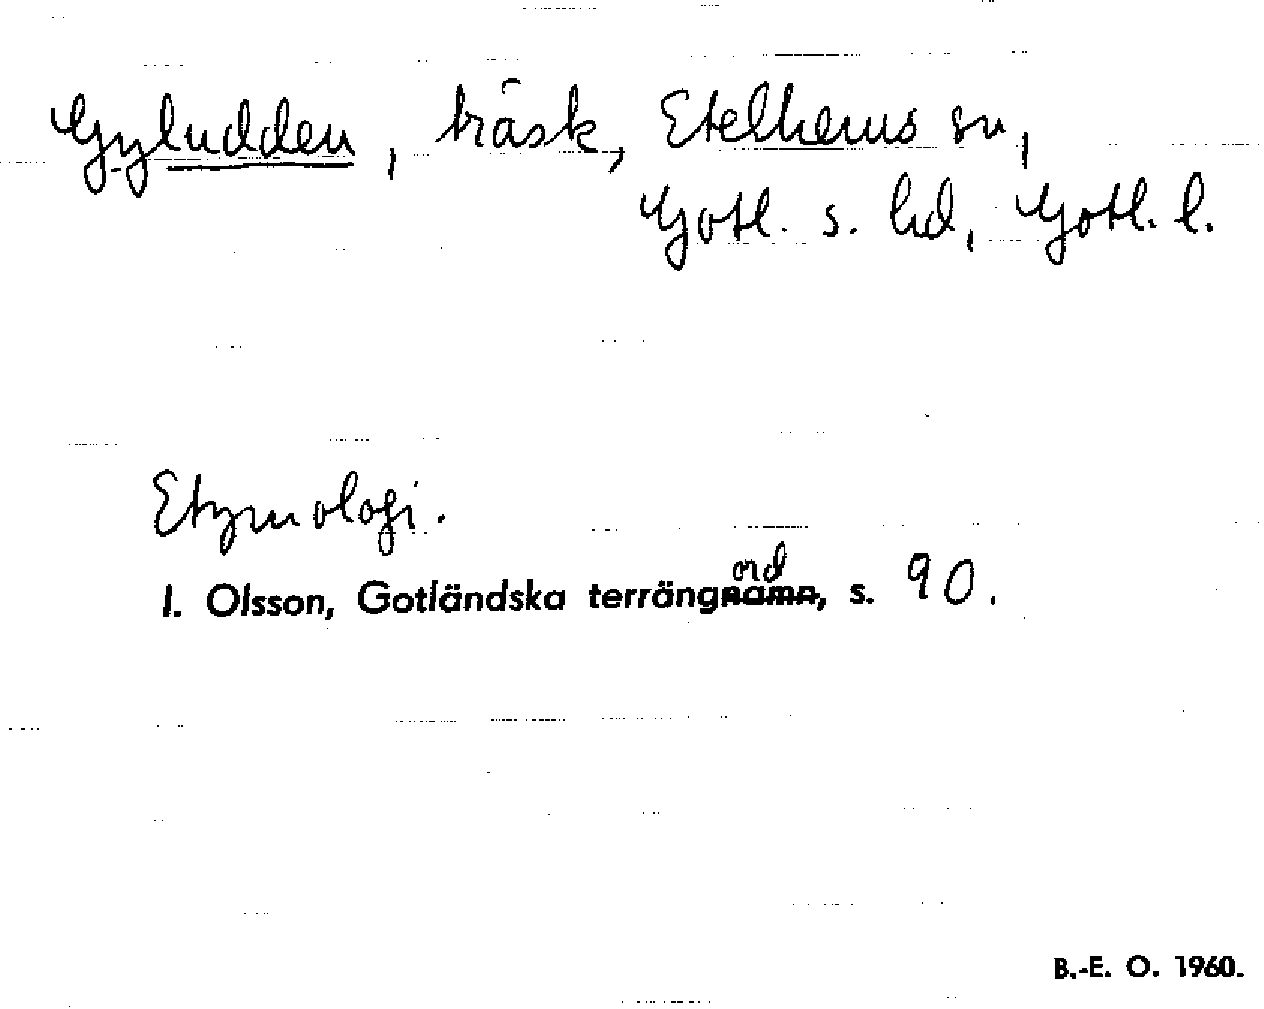 Gyludden, träsk, Etelhems sn,
Gotl. s. hd, Gotl. l.
Etymologi.
I. Olsson, Gotländska terrängord, s. 90.
B.-E. O. 1960.